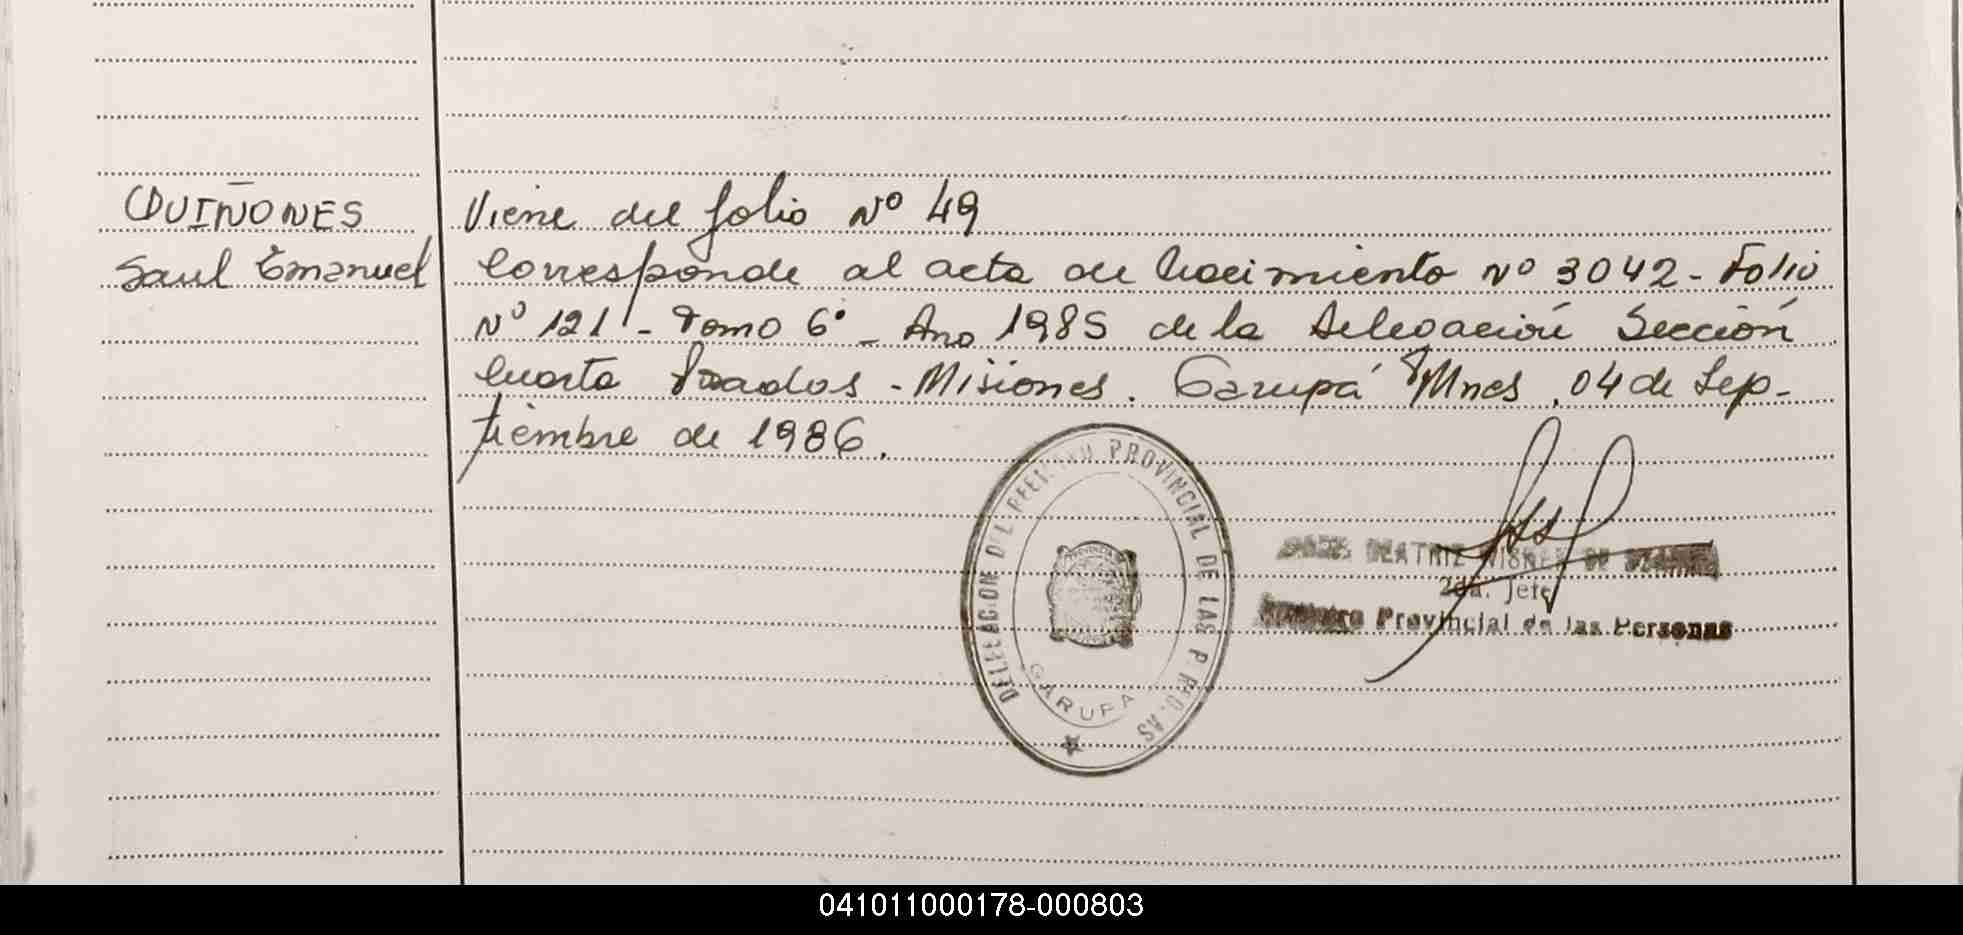 QUIÑONES
Saul Emanuel
Viene del folio Nº 49
Corresponde al acta de Nacimiento Nº 3042 - Folio
Nº 121 - Tomo 6º - Año 1985 de la Delegación Sección
Cuarta Posadas - Misiones. Garupá Mnes, 04 de Sep-
tiembre de 1986.
DELEGACION DEL REGISTRO PROVINCIAL DE LAS PERSONAS
GARUPA
BEATRIZ DE
2da. Jefe
Registro Provincial de las Personas
041011000178-000803